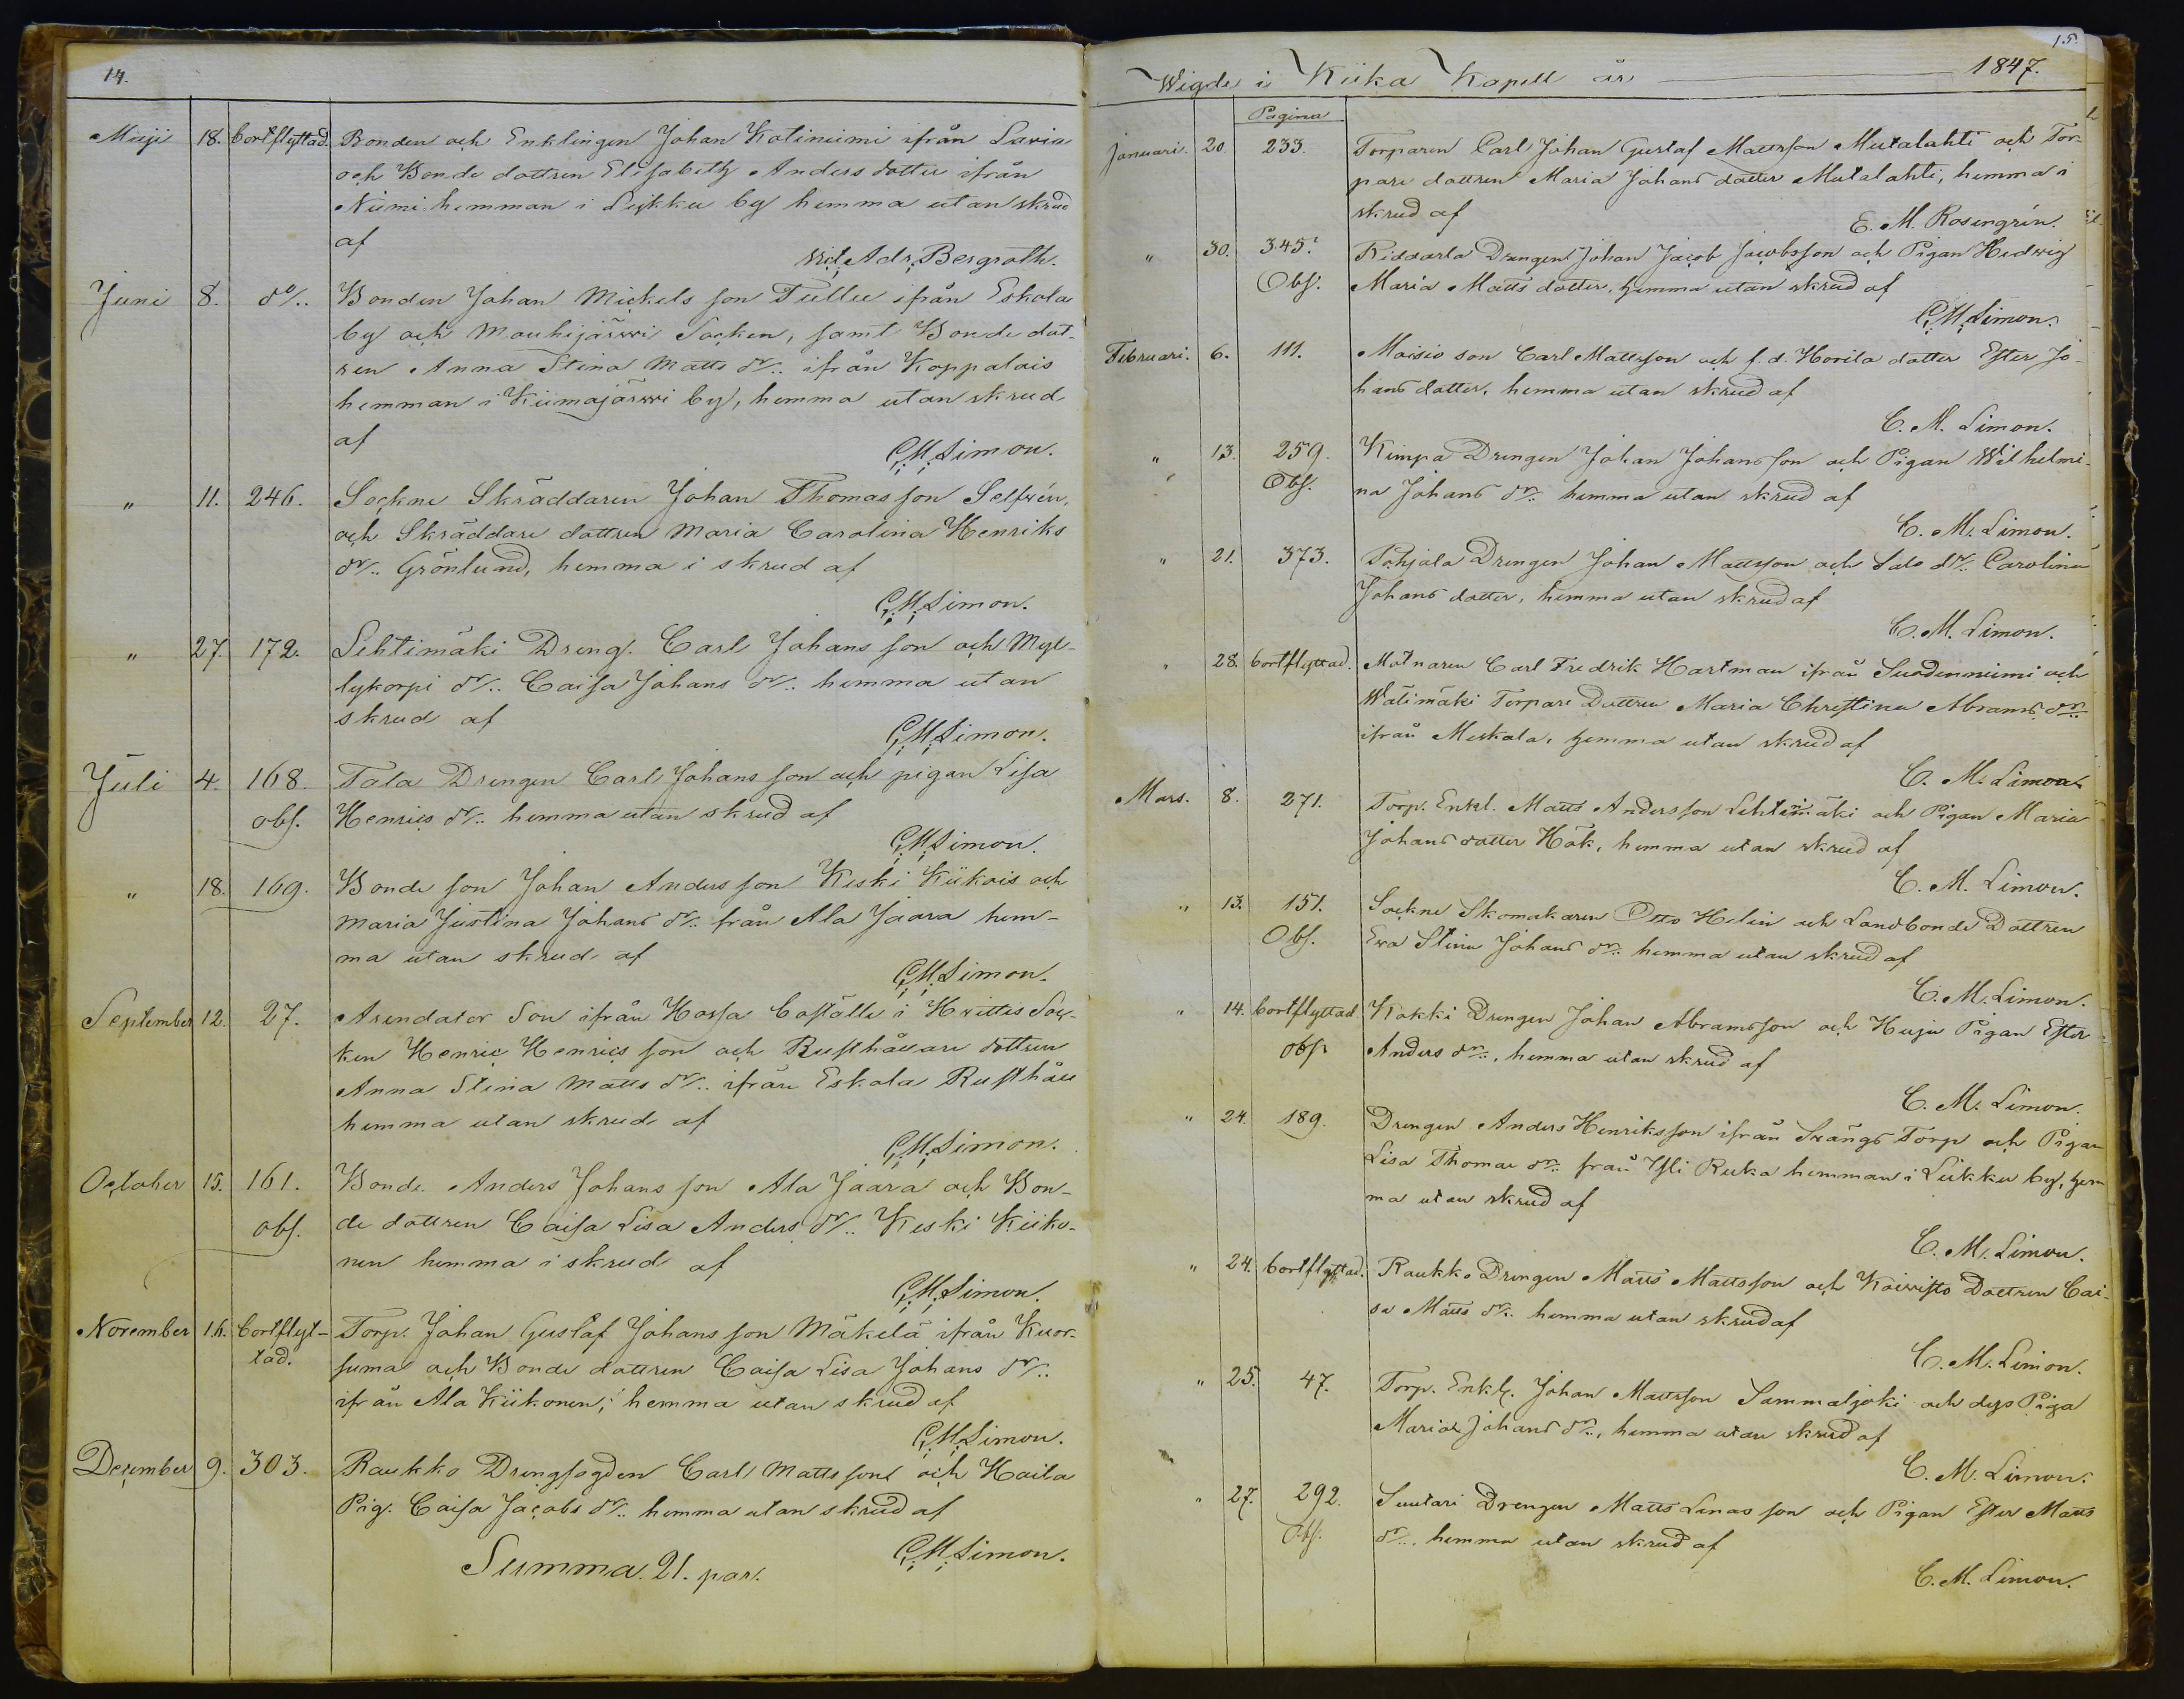 14.
Maji 18. bortflyttad. Bonden och Enklingen Johan Kotiniemi ifrån Lavia
och Bonde dottren Elisabeth Anders dotter ifrån
Niemi hemman i Leikku by hemma utan skrud
af
Adr. Bergroth.
Juni 8. do/.. Bonden Johan Mickels son Tullu ifrån Eskola
by och Mouhijärwi Socken, samt Bonde dot-
ren Anna Stina Matts dr/.. ifrån Koppalais
hemman i Kiimajärwi by, hemma utan skrud
af
C. M. Limon.
" 11. 246. Sockne Skräddaren Johan Thomas son Selfwén,
och Skräddare dottren Maria Carolina Henriks
dr/.. Grönlund, hemma i skrud af
C. M. Limon.
" 27. 172. Lehtimäki Dreng. Carl Johans son och Myl-
lykorpi dr/.. Caisa Johans dr/.. hemma utan
skrud af
C. M. Limon.
Juli 4. 168. Tala Drengen Carl Johans son och pigan Lisa
obs. Henrics dr/.. hemma utan skrud af
C. M. Limon.
" 18. 169. Bonde son Johan Anders son Keski Kiikois och
Maria Justina Johans dr/.. från Ala Jaara hem-
ma utan skrud af
C. M. Limon.
September 12. 27. Arendator Son ifrån Hossa Boställe i Hvittis Soc-
ken Henric Henrics son och Rusthållare dottren
Anna Stina Matts dr/.. ifrån Eskola Rusthåll
hemma utan skrud af
C. M. Limon.
October 15. 161. Bonde Anders Johans son Ala Jaara och Bon-
obs. de dottren Caisa Lisa Anders dr/.. Keski Kiiko-
nen hemma i skrud af
C. M. Limon.
November 16. bortflyt- Torp. Johan Gustaf Johans son Mäkelä ifrån Kuor-
tad. suma och Bonde dottren Caisa Lisa Johans dr/..
ifrån Ala Kiikonen, hemma utan skrud af
C. M. Limon.
December 9. 303. Raukko Drengfogden Carl Matts son och Haila
Pig. Caisa Jacobs dr/.. hemma utan skrud af
C. M. Limon.
Summa. 21. par.
15.
Wigde i Kiika Kapell år 1847.
Pagina
Januari. 20. 233. Torparen Carl Johan Gustaf Mattsson Mutalahti och Tor-
pare dottren Maria Johans dotter Mutalahti, hemma i
skrud af
E. M. Rosengrén.
" 30. 345. Riddarla Drengen Johan Jacob Jacobsson och Pigan Hedwig
Obs. Maria Matts dotter, hemma utan skrud af
C. M. Limon.
Februari. 6. 111. Moisio son Carl Mattsson och f. d. Horila dotter Ester Jo-
hans dotter, hemma utan skrud af
C. M. Limon.
" 13. 259. Kimpa Drengen Johan Johans son och Pigan Wilhelmi-
Obs. na Johans dr/.. hemma utan skrud af
C. M. Limon.
" 21. 373. Pohjala Drengen Johan Mattsson och Salo dr/.. Carolina
Johans dotter, hemma utan skrud af
C. M. Limon.
" 28. bortflyttad. Målnaren Carl Fredrik Hartman ifrån Suodenniemi och
Wätimäki Torpare Dottren Maria Christina Abrams dr/..
ifrån Meskala, hemma utan skrud af
C. M. Limon.
Mars. 8. 271. Torp. Enkl. Matts Andersson Lehtimäki och Pigan Maria
Johans dotter Hök, hemma utan skrud af
C. M. Limon.
" 13. 151. Sockne Skomakaren Otto Helin och Landbonde Dottren
Obs. Ewa Stina Johans dr/.. hemma utan skrud af
C. M. Limon.
" 14. bortflyttad Kokki Drengen Johan Abramsson och Huju Pigan Ester
obs. Anders dr/.., hemma utan skrud af
C. M. Limon.
" 24. 189. Drengen Anders Henriksson ifrån Swängs Torp och Pigan
Lisa Thomae dr/.. från Yli Ruka hemman i Liikku by, hem-
ma utan skrud af
C. M. Limon.
" 24. bortflyttad. Raukko Drengen Matts Mattsson och Koiwisto Dottren Cai-
sa Matts dr/.. hemma utan skrud af
C. M. Limon.
" 25. 47. Torp. Enkl. Johan Mattsson Sammaljoki och dess Piga
Maria Johans dr/.., hemma utan skrud af
C. M. Limon.
" 27. 292. Suutari Drengen Matts Linas son och Pigan Ester Matts
Obs. dr/.. hemma utan skrud af
C. M. Limon.